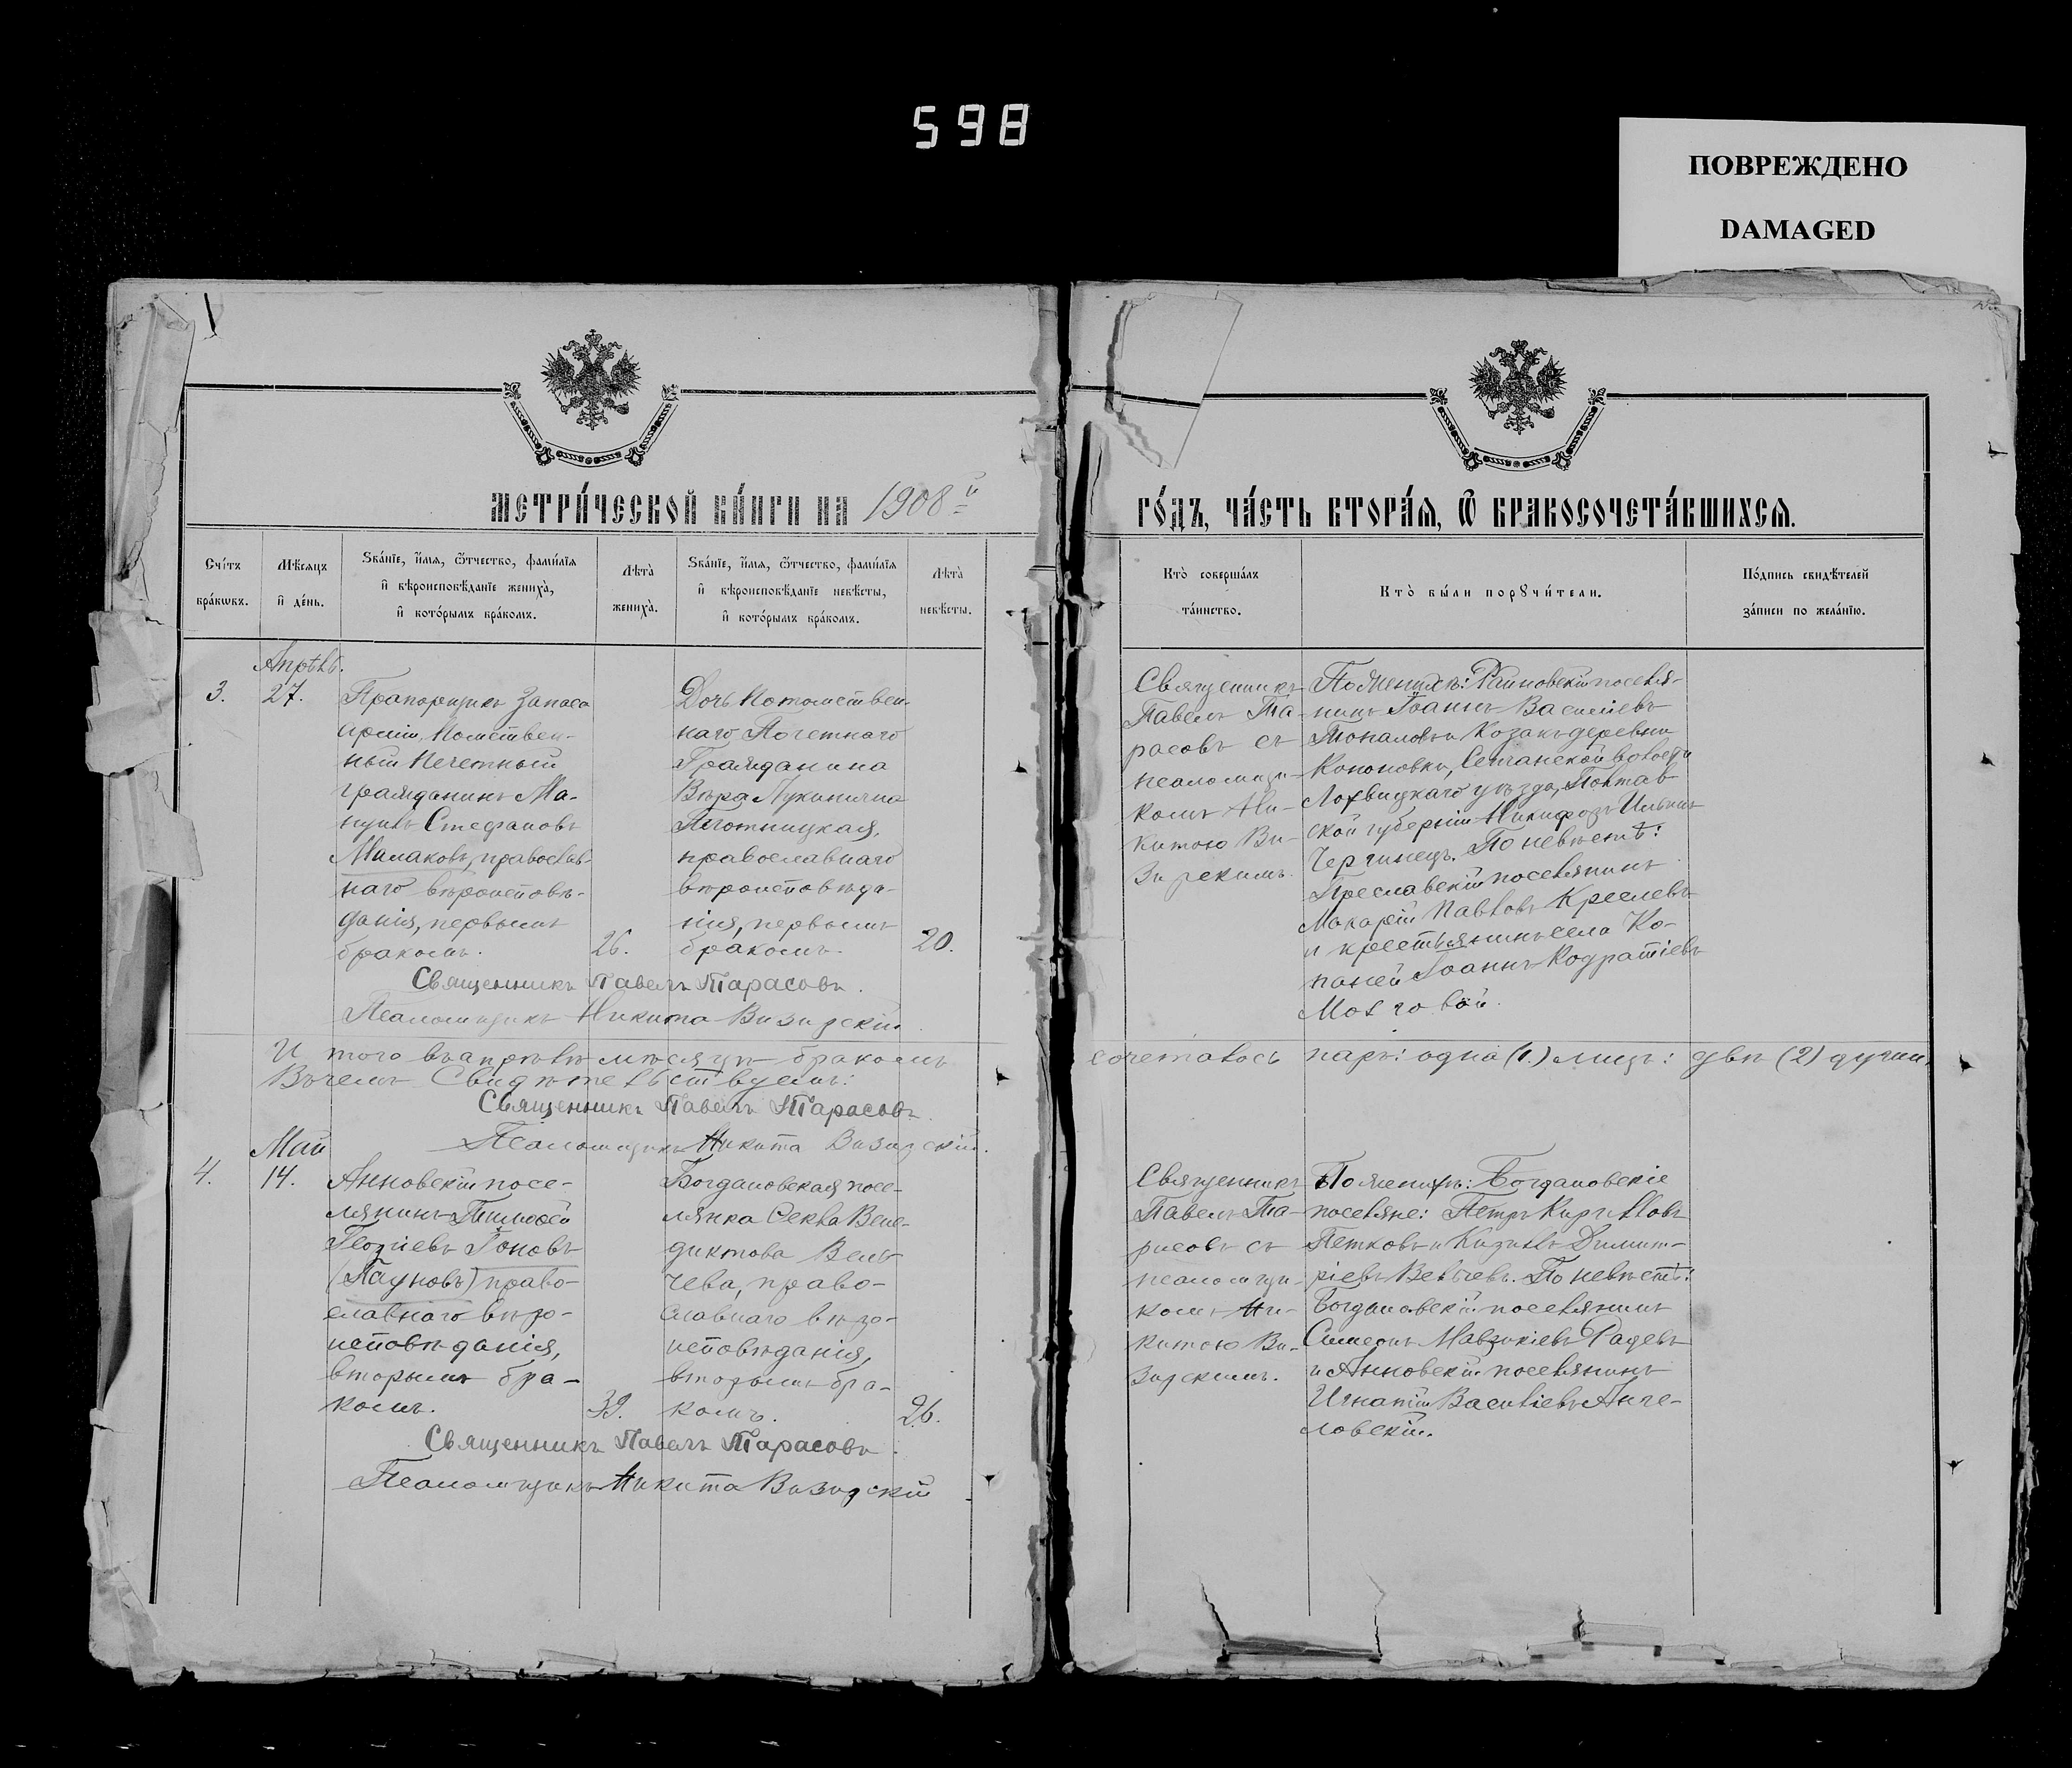 598
ПОВРЕЖДЕНО
DAMAGED
МЕТРИ́ЧЕСКОЙ КНИ́ГИ НА 1908й
ГО́ДЪ, ЧА́СТЬ ВТОРА́Я, Ѿ БРАКОСОЧЕТА́ВШИХСЯ.
Сче́тъ бра́кѡвъ.
Мѣ́сяцъ и҆ де́нь.
Зва́нїе, и҆́мя, ѻ҆́тчество, фами́лїя
и҆ вѣроисповѣ́данїе жениха̀,
и҆ кото́рымъ бра́комъ.
Лѣта̀ жениха̀.
Зва́нїе, и҆́мя, ѻ҆́тчество, фами́лїя
и҆ вѣроисповѣ́данїе невѣ́сты,
и҆ кото́рымъ бра́комъ.
Лѣта̀ невѣ́сты.
Кто̀ соверша́лъ
та́инство.
Кто̀ бы́ли порꙋчи́тели.
По́дпись свидѣ́телей
за́писи по жела́нїю.
Апрѣль.
3.
27.
Прапорщикъ запаса
арміи, Потомствен-
ный Почетный
гражданинъ Ма-
нуилъ Стефановъ
Малаковъ, православ-
наго вѣроисповѣ-
данія, первымъ
бракомъ.
26.
Дочь Потомствен-
наго Почетнаго
Гражданина
Вѣра Лукинична
Плотницкая,
православнаго
вѣроисповѣда-
нія, первымъ
бракомъ.
20.
Священникъ
Павелъ Та-
расовъ съ
псаломщи-
комъ Ни-
китою Ви-
зирскимъ.
По женихѣ: Райновскій поселя-
нинъ Іоаннъ Васильевъ
Топаловъ и Козакъ деревни
Кононовки, Сенчанской волости
Лохвицкаго уѣзда, Полтав
ской губерніи Никифоръ Ильинъ
По невѣстѣ:
Преславскій поселянинъ
Макарій Павловъ Креслевъ
и крестьянинъ села Ко-
паней Іоаннъ Кодратіевъ
Мозговой.
Священникъ Павелъ Тарасовъ.
Псаломщикъ Никита Визирскій.
Итого въ апрѣлѣ мѣсяцѣ бракомъ
сочеталось паръ: одна (1.) лицъ: двѣ (2) души,
Въ чемъ Свидѣтельствуемъ:
Священникъ Павелъ Тарасовъ.
Псаломщикъ Никита Визирскій.
Май
4.
14.
Анновскій посе-
лянинъ Тимофей
Георгіевъ Іоновъ
(Пауновъ) право-
славнаго вѣро-
исповѣданія,
вторымъ бра-
комъ.
39.
Богдановская посе-
лянка Секла Вене-
диктова Вель-
чева, право-
славнаго вѣро-
исповѣданія,
вторымъ бра-
комъ.
26.
Священникъ
Павелъ Та-
расовъ съ
псаломщи-
комъ Ни-
китою Ви-
зирскимъ.
По женихѣ: Богдановскіе
поселяне: Петръ Кирилловъ
Петковъ и Кириллъ Димит-
ріевъ Вельчевъ. По невѣстѣ:
Богдановскій поселянинъ
Симеонъ Маврикіевъ Радевъ
и Анновскій поселянинъ
Игнатій Васильевъ Анге-
ловскій.
Священникъ Павелъ Тарасовъ.
Псаломщикъ Никита Визирскій